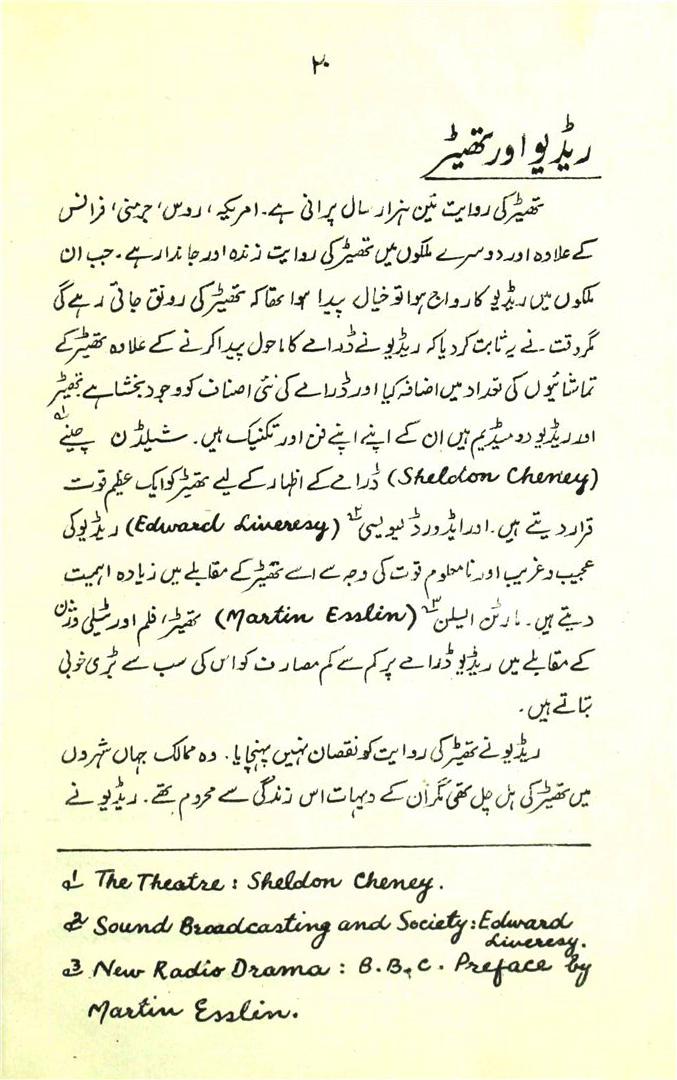 ۲۰
ریڈیو اور تھیٹر
تھیٹر کی روایت تین ہزار سال پرانی ہے۔ امریکہ، روس، جرمنی، فرانس
کے علاوہ اور دوسرے ملکوں میں تھیٹر کی روایت زندہ اور جاندار ہے۔ جب ان
ملکوں میں ریڈیو کا رواج ہوا تو خیال پیدا ہوا تھا کہ تھیٹر کی رونق جاتی رہے گی
مگر وقت نے یہ ثابت کر دیا کہ ریڈیو نے ڈرامے کا ماحول پیدا کرنے کے علاوہ تھیٹر کے
تماشائیوں کی تعداد میں اضافہ کیا اور ڈرامے کی نئی اصناف کو وجود بخشا ہے تھیٹر
اور ریڈیو دو میڈیم ہیں ان کے اپنے اپنے فن اور تکنیک ہیں۔ شیلڈن چینے ۱؎
(Sheldon Cheney) ڈرامے کے اظہار کے لیے تھیٹر کو ایک عظیم قوت
قرار دیتے ہیں۔ اور ایڈورڈ لیویسی ۲؎ (Edward Liveresy) ریڈیو کی
عجیب و غریب اور نامعلوم قوت کی وجہ سے اسے تھیٹر کے مقابلے میں زیادہ اہمیت
دیتے ہیں۔ مارٹن ایسلن ۳؎ (Martin Esslin) تھیٹر، فلم اور ٹیلی ویژن
کے مقابلے میں ریڈیو ڈرامے پر کم سے کم مصارف کو اس کی سب سے بڑی خوبی
بتاتے ہیں۔
ریڈیو نے تھیٹر کی روایت کو نقصان نہیں پہنچایا۔ وہ ممالک جہاں شہروں
میں تھیٹر کی ہل چل تھی مگر ان کے دیہات اس زندگی سے محروم تھے۔ ریڈیو نے
۱؎ The Theatre : Sheldon Cheney.
۲؎ Sound Broadcasting and Society : Edward
Liveresy.
۳؎ New Radio Drama : B.B.C. Preface by
Martin Esslin.